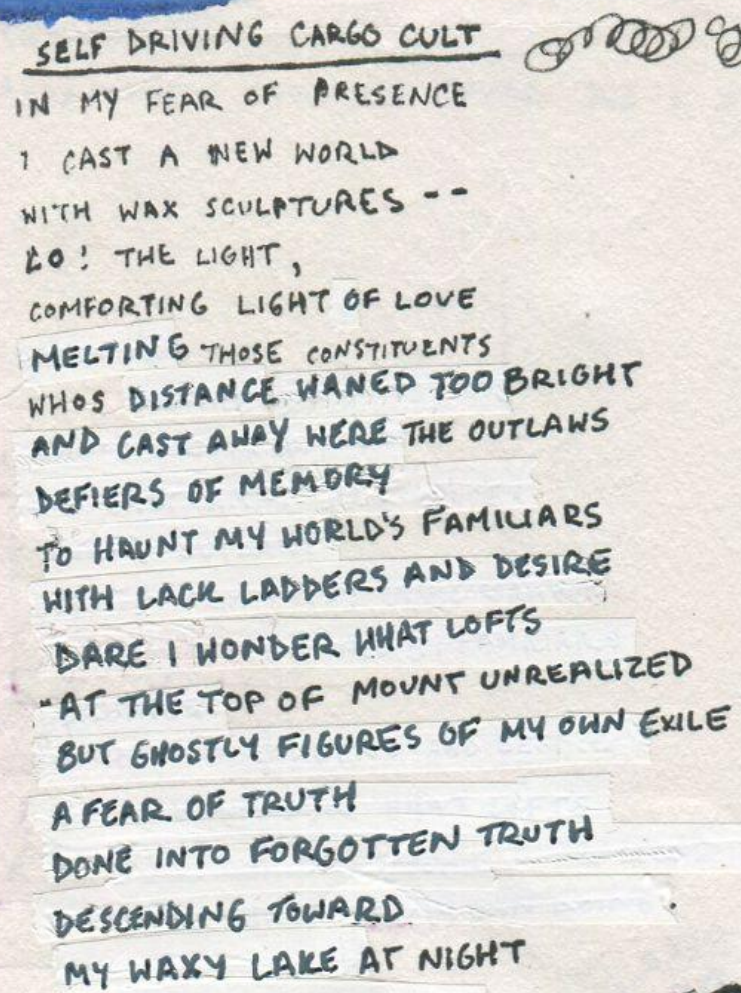 SELF DRIVING CARGO CULT
IN MY FEAR OF PRESENCE
I CAST A NEW WORLD
WITH WAX SCULPTURES --
LO! THE LIGHT,
COMFORTING LIGHT OF LOVE
MELTING THOSE CONSTITUENTS
WHOS DISTANCE WANED TOO BRIGHT
AND CAST AWAY WERE THE OUTLAWS
DEFIERS OF MEMORY
TO HAUNT MY WORLD'S FAMILIARS
WITH LACK LADDERS AND DESIRE
DARE I WONDER WHAT LOFTS
"AT THE TOP OF MOUNT UNREALIZED
BUT GHOSTLY FIGURES OF MY OWN EXILE
A FEAR OF TRUTH
DONE INTO FORGOTTEN TRUTH
DESCENDING TOWARD
MY WAXY LAKE AT NIGHT